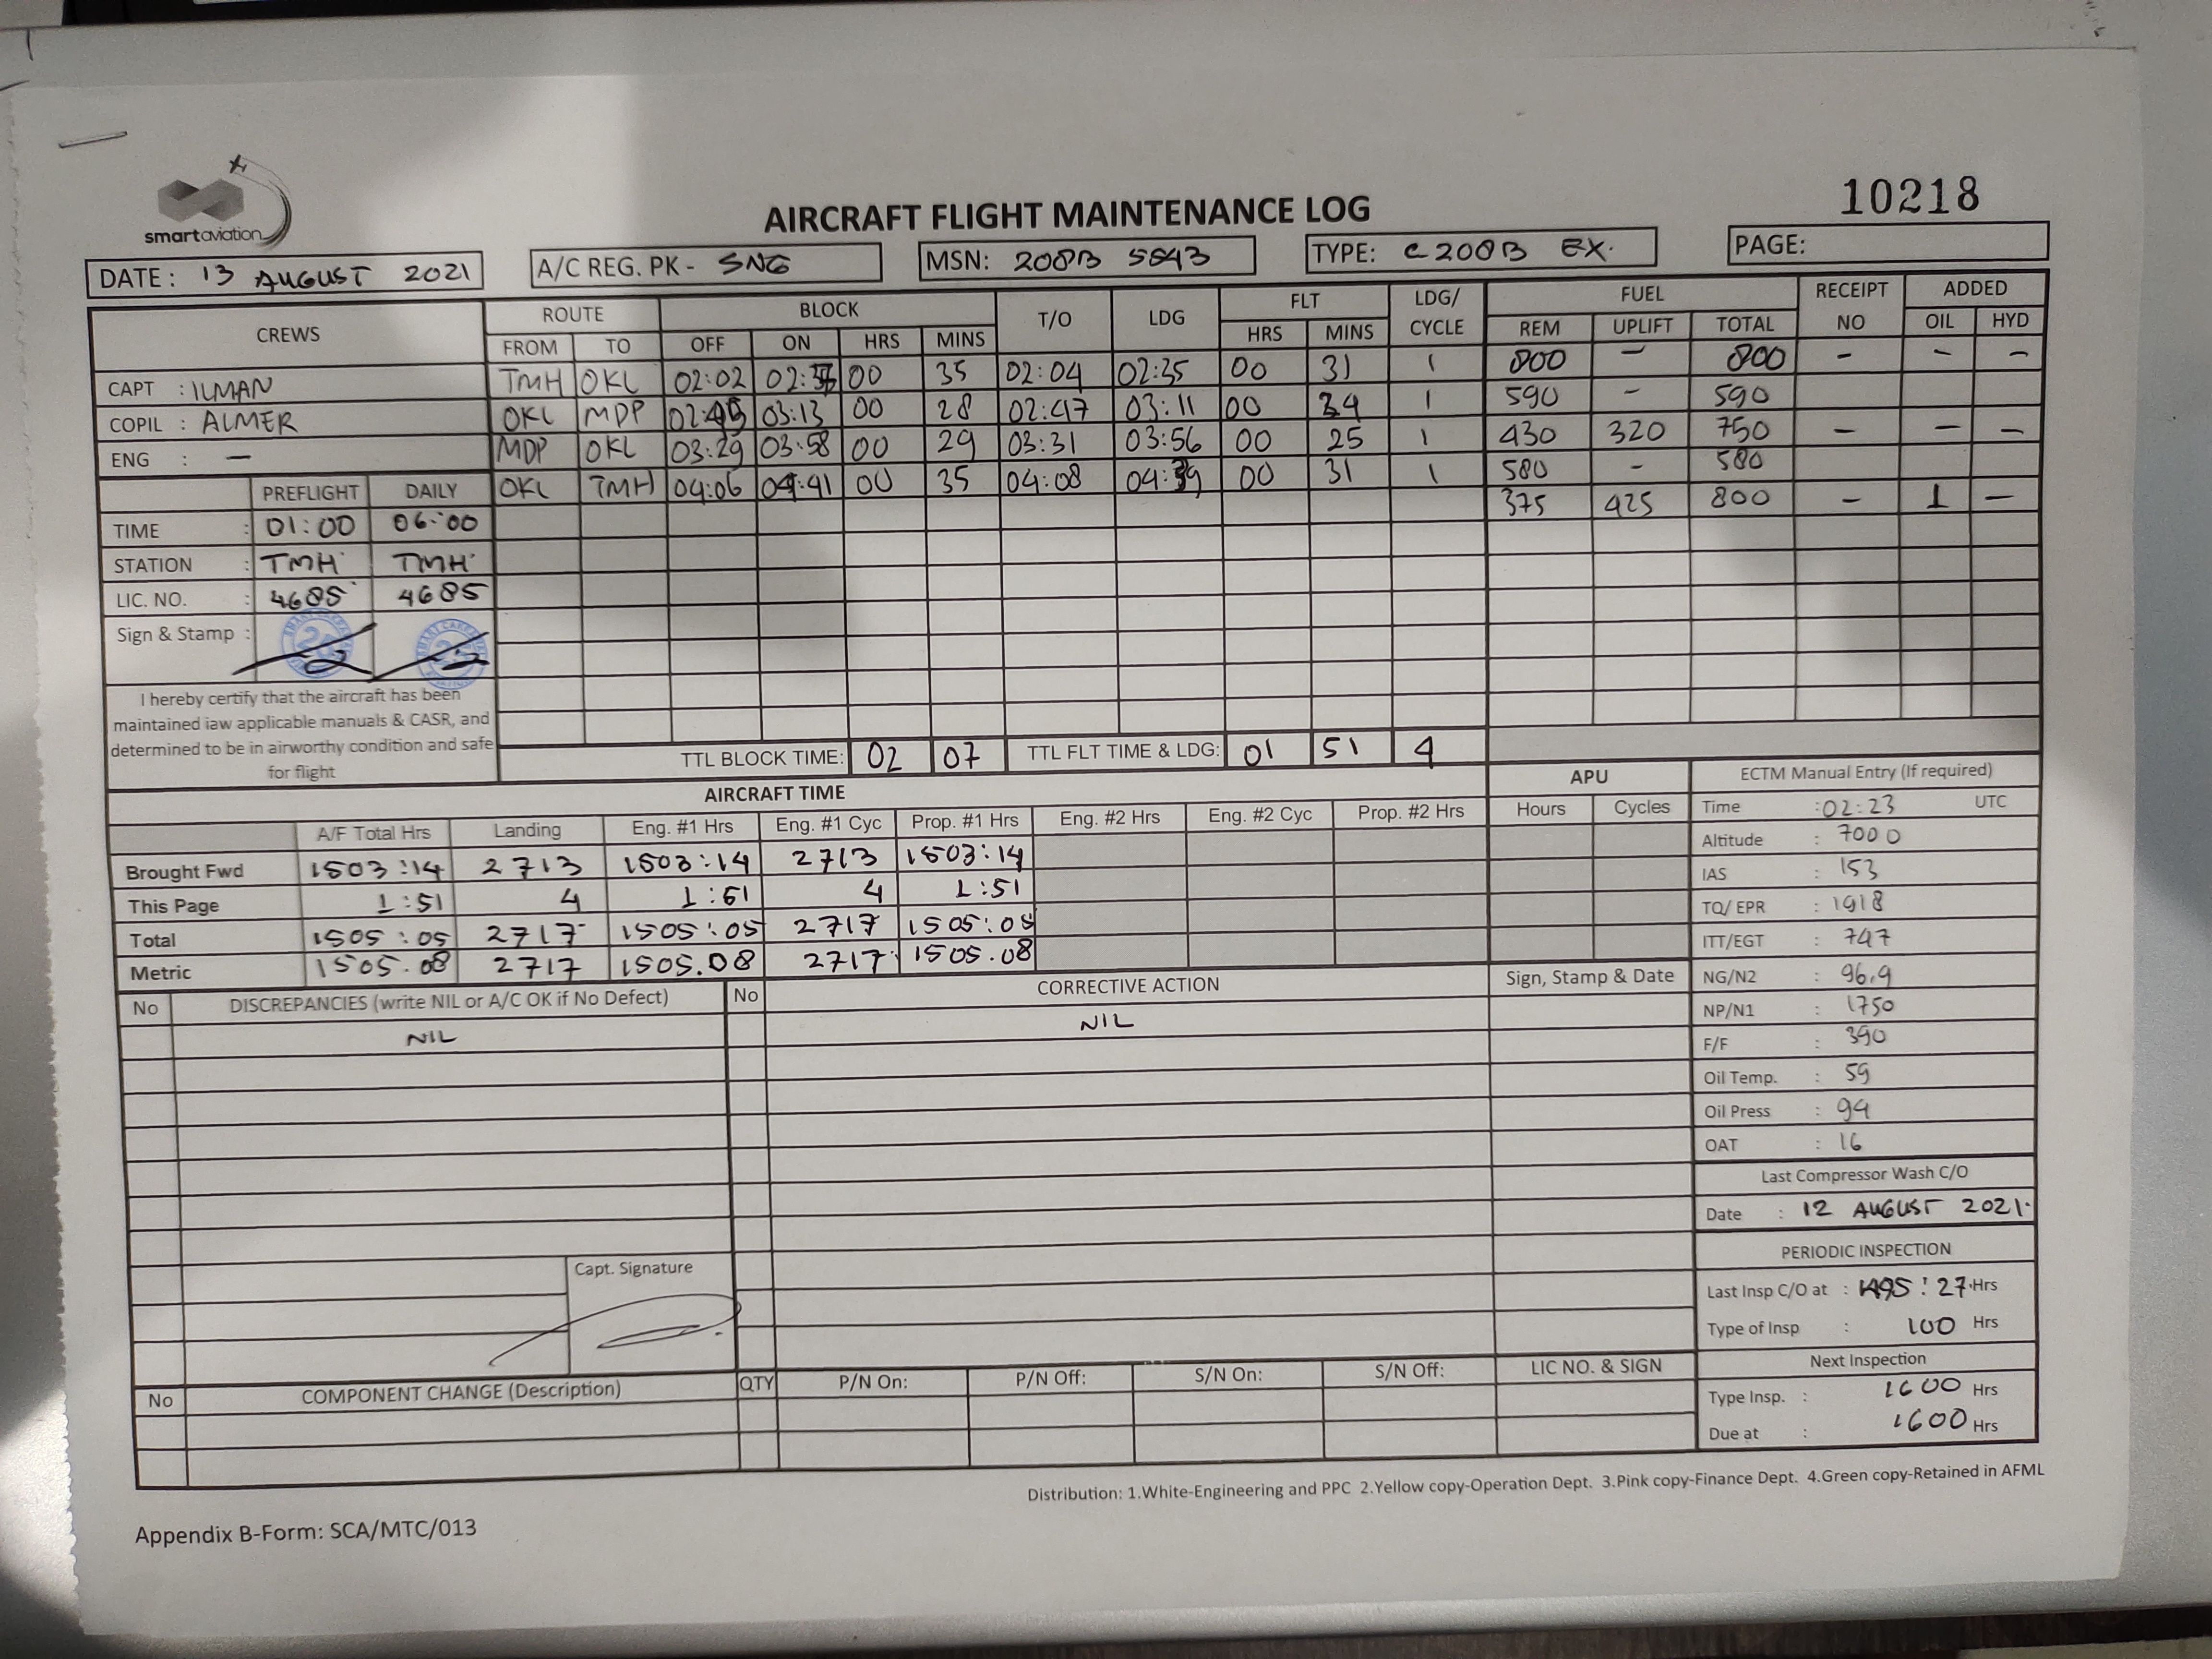 smartaviation
AIRCRAFT FLIGHT MAINTENANCE LOG
10218
DATE: 13 AUGUST 2021 A/C REG. PK - SNG MSN: 208B 5543 TYPE: C208B EX. PAGE:
CREWS ROUTE BLOCK T/O LDG FLT LDG/ CYCLE FUEL RECEIPT NO ADDED
FROM TO OFF ON HRS MINS HRS MINS REM UPLIFT TOTAL OIL HYD
CAPT : ILMAN TMH OKL 02:02 02:37 00 35 02:04 02:35 00 31 1 800 - 800 - - -
COPIL : ALMER OKL MDP 02:45 03:13 00 28 02:47 03:11 00 24 1 590 - 590
ENG : - MDP OKL 03:29 03:58 00 29 03:31 03:56 00 25 1 430 320 750 - - -
OKL TMH 04:06 04:41 00 35 04:08 04:39 00 31 1 580 - 580
375 425 800 - 1 -
PREFLIGHT DAILY
TIME : 01:00 06:00
STATION : TMH TMH
LIC. NO. : 4685 4685
Sign & Stamp :
I hereby certify that the aircraft has been
maintained iaw applicable manuals & CASR, and
determined to be in airworthy condition and safe
for flight
TTL BLOCK TIME: 02 07 TTL FLT TIME & LDG: 01 51 4
AIRCRAFT TIME APU
A/F Total Hrs Landing Eng. #1 Hrs Eng. #1 Cyc Prop. #1 Hrs Eng. #2 Hrs Eng. #2 Cyc Prop. #2 Hrs Hours Cycles
Brought Fwd 1503:14 2713 1503:14 2713 1503:14
This Page 1:51 4 1:51 4 1:51
Total 1505:05 2717 1505:05 2717 1505:05
Metric 1505.08 2717 1505.08 2717 1505.08
ECTM Manual Entry (If required)
Time : 02:23 UTC
Altitude : 7000
IAS : 153
TQ/ EPR : 1918
ITT/EGT : 747
NG/N2 : 96.9
NP/N1 : 1750
F/F : 390
Oil Temp. : 59
Oil Press : 94
OAT : 16
Last Compressor Wash C/O
Date : 12 AUGUST 2021.
PERIODIC INSPECTION
Last Insp C/O at : 1495:27 Hrs
Type of Insp : 100 Hrs
Next Inspection
Type Insp. : 1600 Hrs
Due at : 1600 Hrs
No DISCREPANCIES (write NIL or A/C OK if No Defect) No CORRECTIVE ACTION Sign, Stamp & Date
NIL NIL
Capt. Signature
No COMPONENT CHANGE (Description) QTY P/N On: P/N Off: S/N On: S/N Off: LIC NO. & SIGN
Distribution: 1.White-Engineering and PPC 2.Yellow copy-Operation Dept. 3.Pink copy-Finance Dept. 4.Green copy-Retained in AFML
Appendix B-Form: SCA/MTC/013